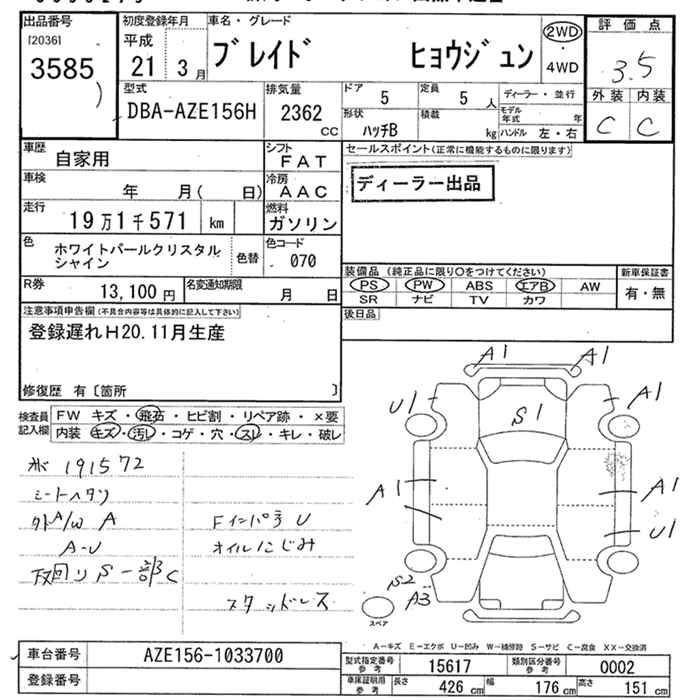 出品番号 初度登録年月 車名・グレード 評価点
[2036] 平成 ブレイド ヒョウジュン 2WD
3585 21 3月 ・4WD 3.5
型式 排気量 ドア 定員 ディーラー・並行 外装 内装
DBA-AZE156H 2362 CC 5 5人 モデル年式 年 C C
形状 積載
ハッチB kg ハンドル 左・右
車歴 自家用 シフト FAT セールスポイント(正常に機能するものに限ります)
車検 年 月( 日) 冷房 AAC ディーラー出品
走行 19万1千571 km 燃料 ガソリン
色 ホワイトパールクリスタルシャイン 色替 色コード 070
装備品(純正品に限り○をつけてください) 新車保証書
R券 13,100円 名変通知期限 月 日 PS PW ABS エアB AW 有・無
SR ナビ TV カワ
注意事項申告欄(不具合内容等は具体的に記入して下さい) 後日品
登録遅れH20.11月生産
修復歴 有〔箇所 〕
検査員記入欄 FW キズ・飛石・ヒビ割・リペア跡・×要
内装 キズ・汚レ・コゲ・穴・スレ・キレ・破レ
A1 A1
U1 S1 A1
191572
シートヘタリ
外A/W A Fインパネ U
A-U オイルにじみ
下回りS一部C
スタッドレス
A1 A1
U1
S2
A3
スペア
A-キズ E-エクボ U-凹み W-補修跡 S-サビ C-腐食 XX-交換済
車台番号 AZE156-1033700 型式指定番号 参考 15617 類別区分番号 参考 0002
登録番号 車庫証明用 参考 長さ 426cm 幅 176cm 高さ 151cm